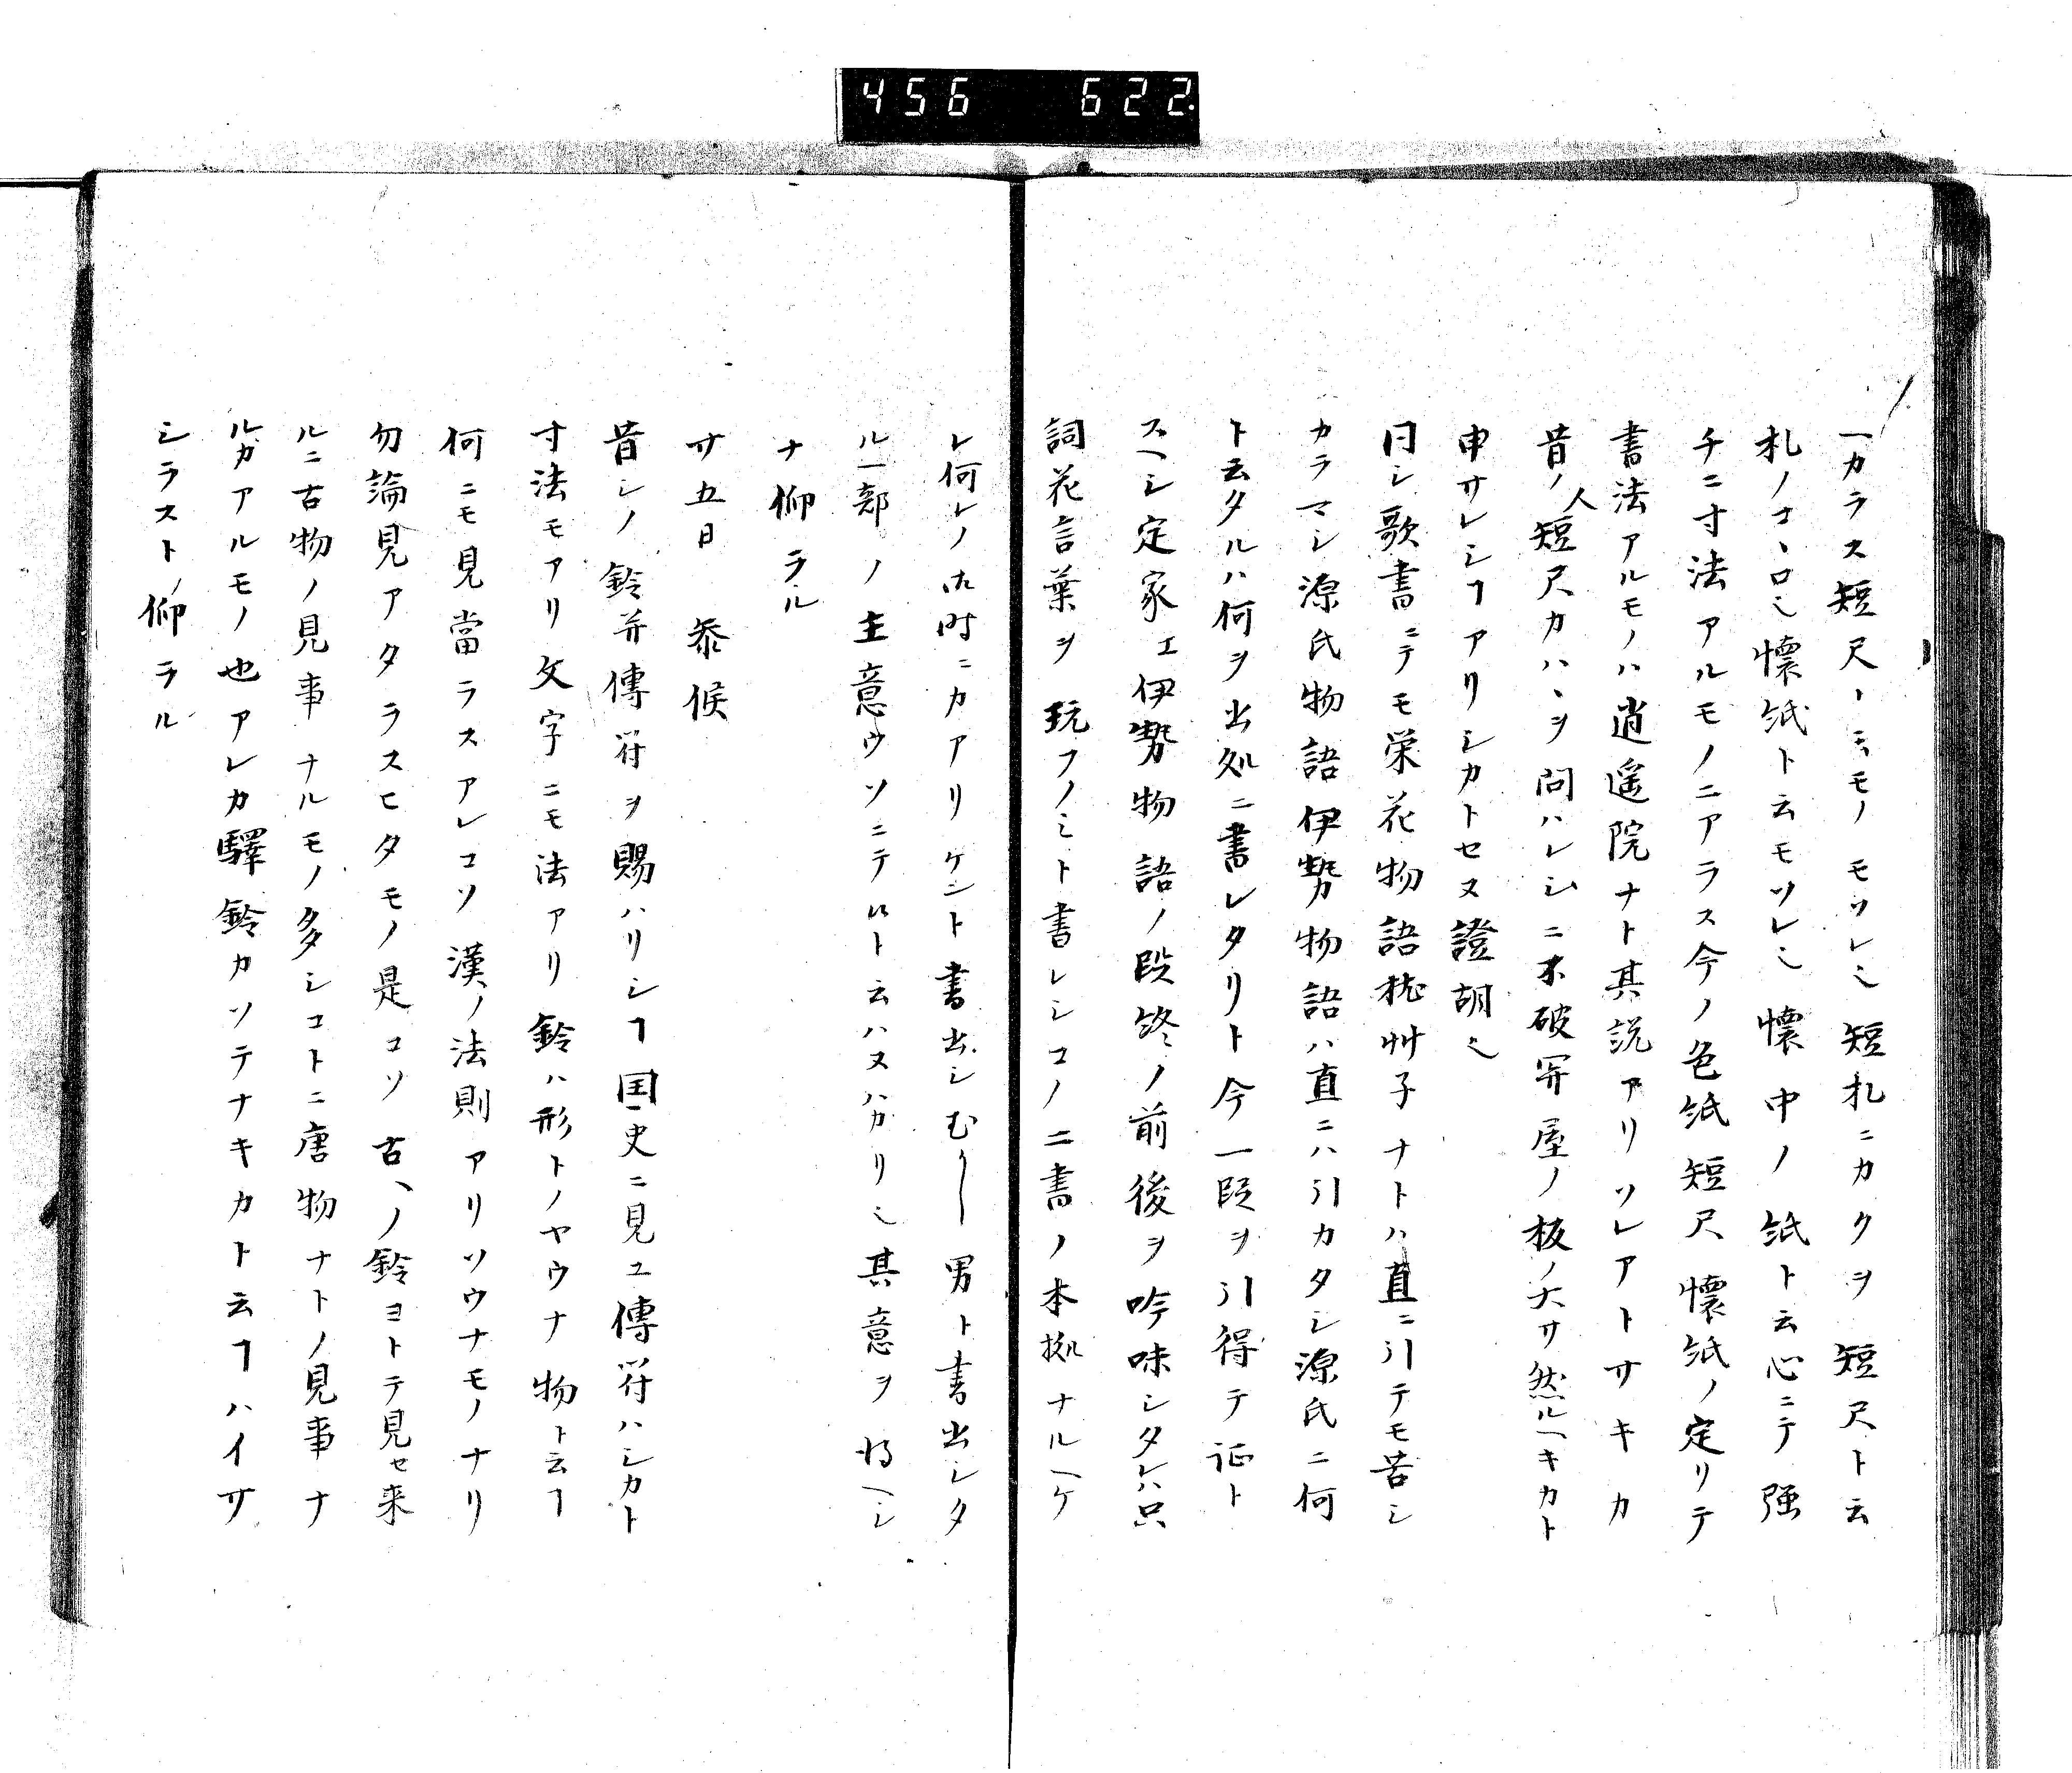 456 622
ヘカラス短尺トミモノモツレミ短札ニカクヲ短尺ト云
札ノコヽロミ懐紙ト云モツレミ懐中ノ紙ト云心ニテ強
チニ寸法アルモノニアラス今ノ色紙短尺懐紙ノ定リテ
書法アルモノハ逍遥院ナト其説アリソレアトサキカ
昔ノ人短尺カハヽヲ問ハレシニ不破関屋ノ板ノ大サ然ルヘキカト
申サレシヿアリシカトセヌ證胡ミ
同シ歌書ニテモ栄花物語枕艸子ナトハ直ニ引テモ苦シ
カラマシ源氏物語伊勢物語ハ直ニハ引カタシ源氏ニ何
ト云タルハ何ヲ出処ニ書レタリト今一段ヲ引得テ証ト
スヘシ定家エ伊勢物語ノ段終ノ前後ヲ吟味シタレハ只
詞花言葉ヲ玩フノミト書レシコノ二書ノ本拠ナルヘケ
レ何レノ御時ニカアリケント書出シむかし男ト書出シタ
ル一部ノ主意ウソニテ候ト云ハヌハカリミ其意ヲ得ヘシ
ナ仰ラル
廿五日 参候
昔シノ鈴并傳符ヲ賜ハリシヿ国史ニ見ユ傳符ハシカト
寸法モアリ文字ニモ法アリ鈴ハ形トノヤウナ物ト云ヿ
何ニモ見當ラスアレコソ漢ノ法則アリソウナモノナリ
勿論見アタラスヒタモノ是コソ古ヘノ鈴ヨトテ見セ来
ルニ古物ノ見事ナルモノ多シコトニ唐物ナトノ見事ナ
ルカアルモノ也アレカ驛鈴カソテナキカト云ヿハイサ
シラスト仰ラル